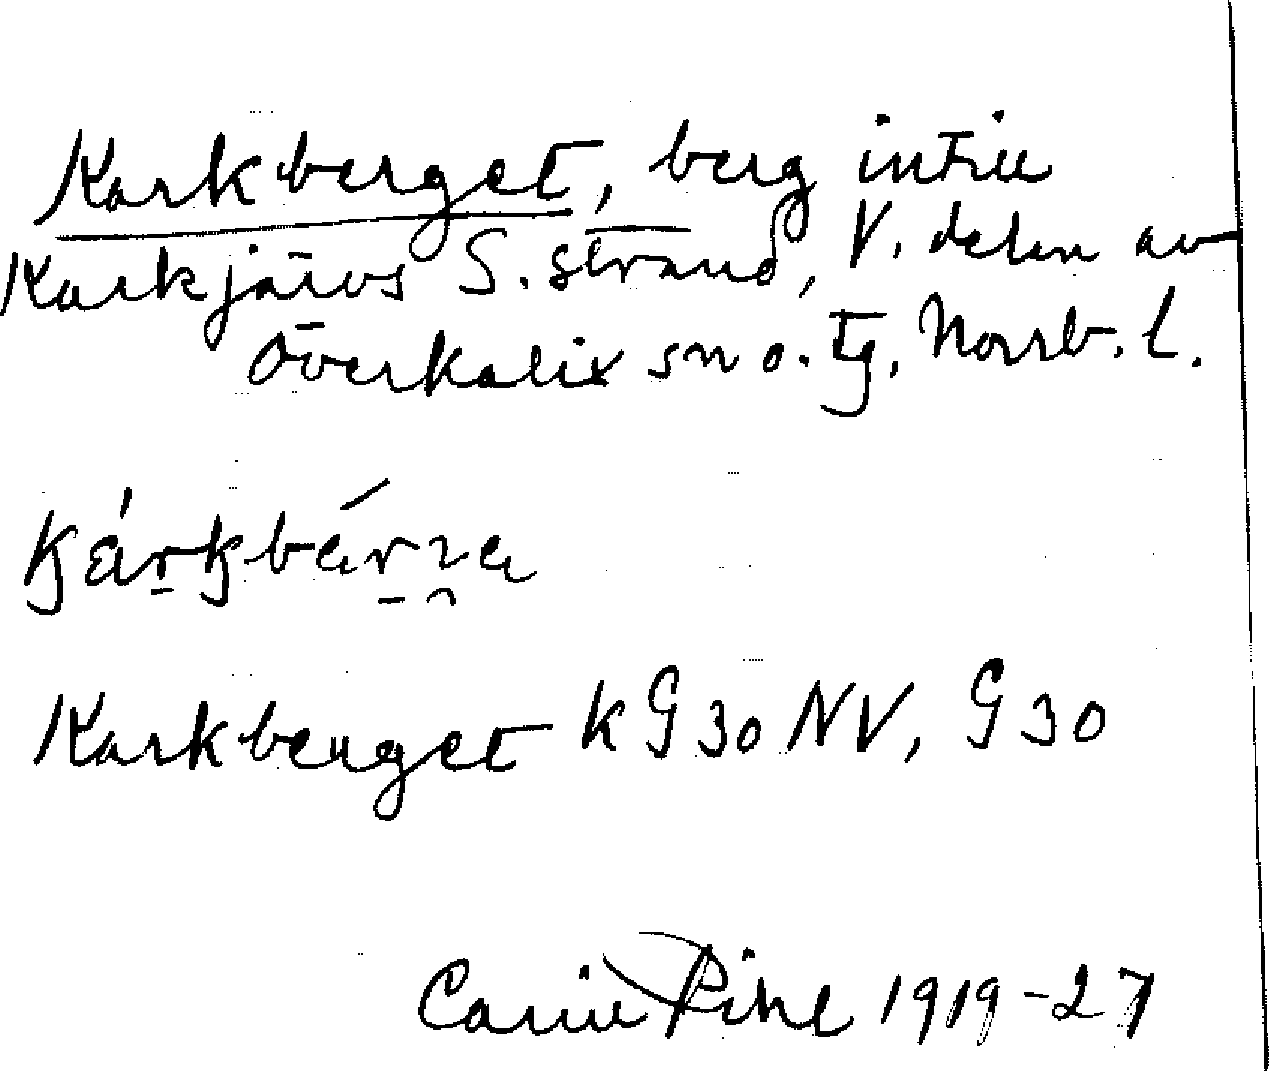 Karkberget, berg intill
Karkjärvs S. strand, V. delen av
Överkalix sn o. tg, Norrb. l.
Karkberget k G 30 NV, G 30
Carin Pihl 1919-27